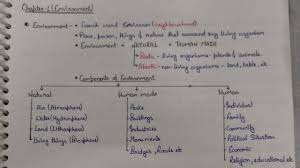 Chapter-1 (Environment)
Environment - French word Environer (neighbourhood)
Place, person, things & nature that surround any living organism
Environment = NATURAL + HUMAN MADE
Biotic - living organisms - plants & animals
Abiotic - non living organisms - land, table, etc
Components of Environment
Natural
Human made
Human
Air (Atmosphere)
Parks
Individual
Water (Hydrosphere)
Buildings
Family
Land (Lithosphere)
Industries
Community
Living things (Biosphere)
Monuments
Political Situation
Bridges, Roads etc
Economic
Religion, educational etc